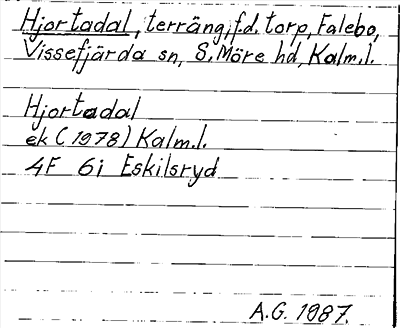 Hjortadal, terräng, f.d. torp, Falebo,
Vissefjärda sn, S. Möre hd, Kalm.l.
Hjortadal
ek (1978) Kalm.l.
4F 6i Eskilsryd
A.G. 1987.